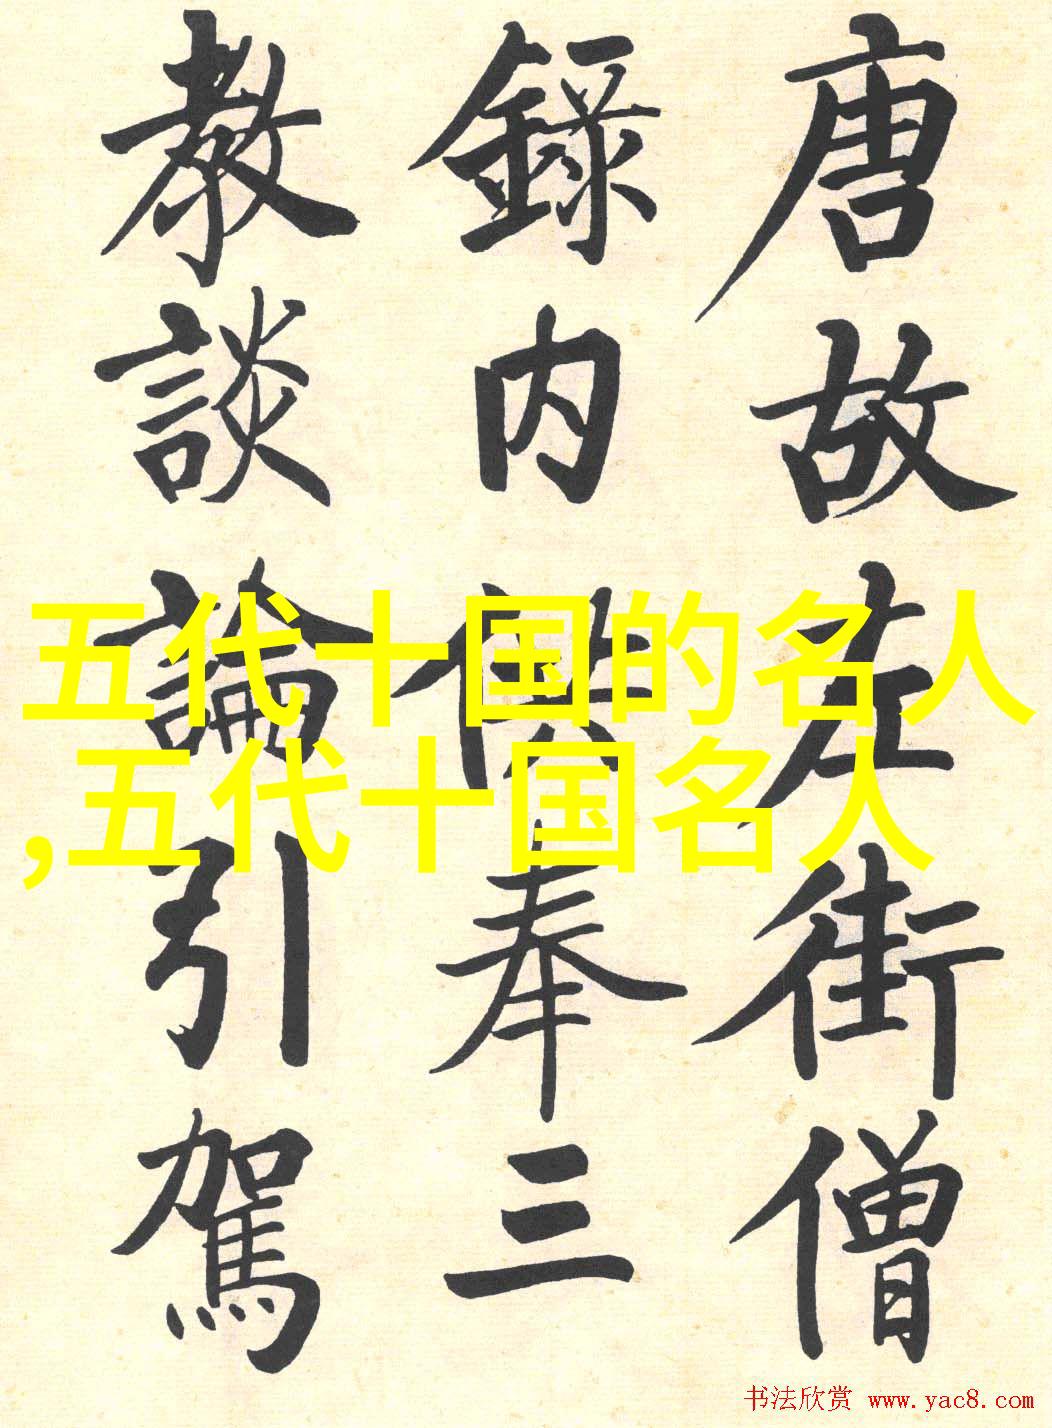 唐故左街僧
錄内供奉三
教談論引駕
五代十国的名人
,五代十国名人
书法欣赏 www.yac8.com